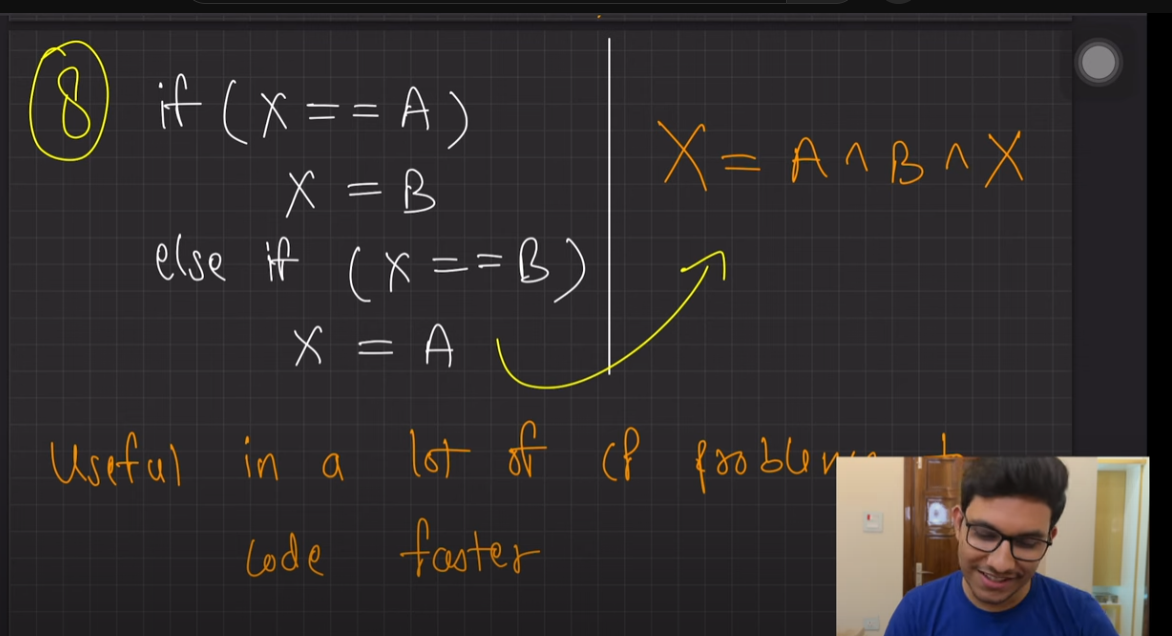 8
if (X == A)
X = B
else if (X == B)
X = A
X = A ^ B ^ X
Useful in a lot of CP
code faster